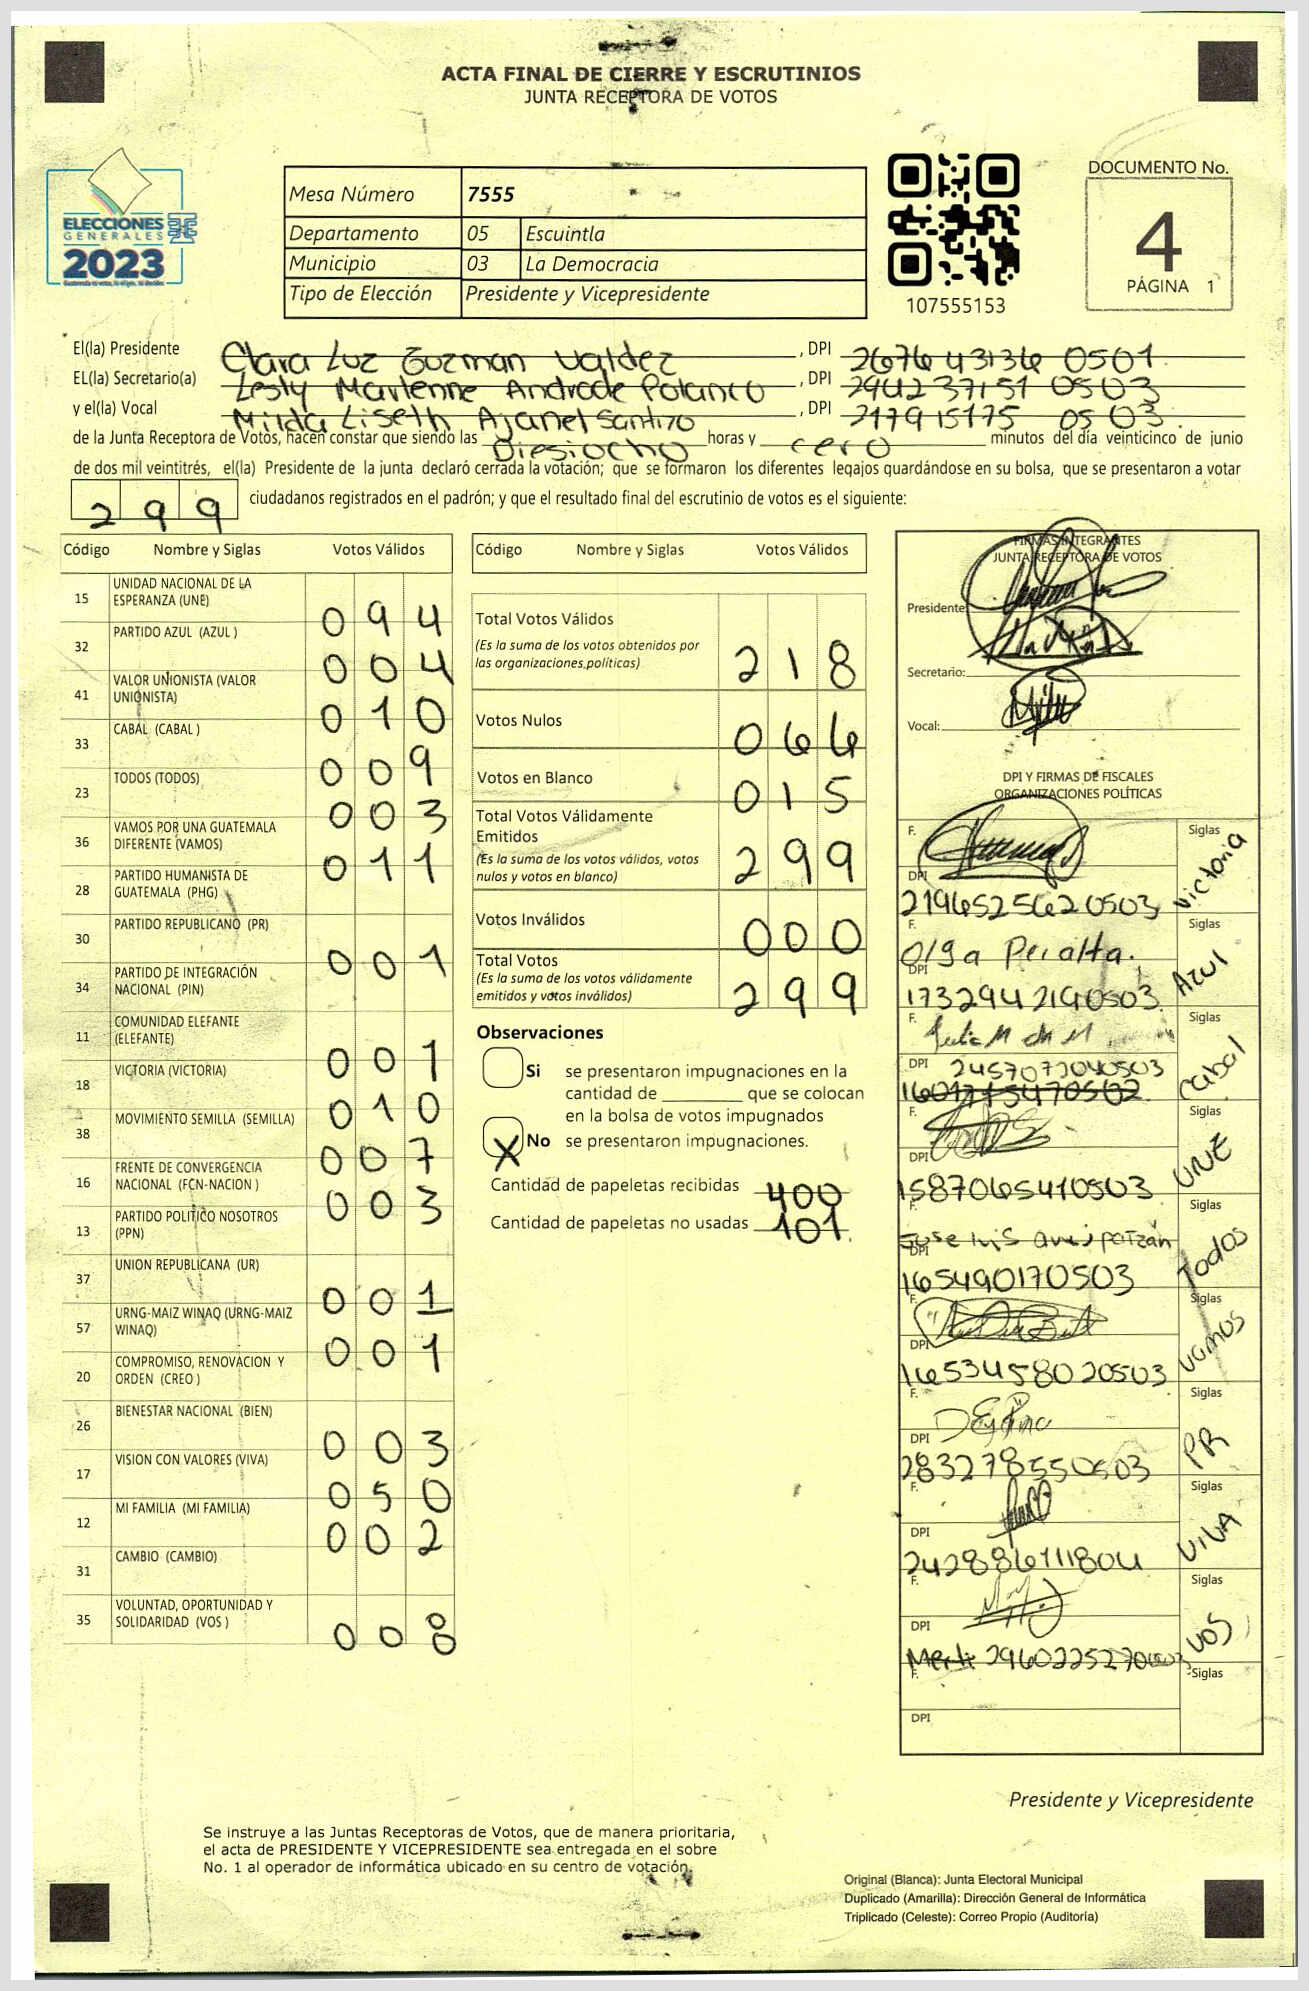 ACTA FINAL DE CIERRE Y ESCRUTINIOS
JUNTA RECEPTORA DE VOTOS
ELECCIONES
GENERALES
2023
Mesa Número 7555
Departamento 05 Escuintla
Municipio 03 La Democracia
Tipo de Elección Presidente y Vicepresidente
107555153
DOCUMENTO No.
4
PÁGINA 1
El(la) Presidente Clara Luz Guzman Valdez, DPI 2676 43136 0501
EL(la) Secretario(a) Lesly Marlenne Andrade Polanco, DPI 2942 37151 0503
y el(la) Vocal Milda Liseth Ajanel Santizo, DPI 217915175 0503
de la Junta Receptora de Votos, hacen constar que siendo las Diesiocho horas y cero minutos del día veinticinco de junio
de dos mil veintitrés, el(la) Presidente de la junta declaró cerrada la votación; que se formaron los diferentes legajos guardándose en su bolsa, que se presentaron a votar
299 ciudadanos registrados en el padrón; y que el resultado final del escrutinio de votos es el siguiente:
Código Nombre y Siglas Votos Válidos
15 UNIDAD NACIONAL DE LA ESPERANZA (UNE) 094
32 PARTIDO AZUL (AZUL ) 004
41 VALOR UNIONISTA (VALOR UNIONISTA) 010
33 CABAL (CABAL ) 009
23 TODOS (TODOS) 003
36 VAMOS POR UNA GUATEMALA DIFERENTE (VAMOS) 011
28 PARTIDO HUMANISTA DE GUATEMALA (PHG)
30 PARTIDO REPUBLICANO (PR) 001
34 PARTIDO DE INTEGRACIÓN NACIONAL (PIN)
11 COMUNIDAD ELEFANTE (ELEFANTE) 001
18 VICTORIA (VICTORIA) 010
38 MOVIMIENTO SEMILLA (SEMILLA) 007
16 FRENTE DE CONVERGENCIA NACIONAL (FCN-NACION ) 003
13 PARTIDO POLITICO NOSOTROS (PPN)
37 UNION REPUBLICANA (UR) 001
57 URNG-MAIZ WINAQ (URNG-MAIZ WINAQ) 001
20 COMPROMISO, RENOVACION Y ORDEN (CREO )
26 BIENESTAR NACIONAL (BIEN) 003
17 VISION CON VALORES (VIVA) 050
12 MI FAMILIA (MI FAMILIA) 002
31 CAMBIO (CAMBIO)
35 VOLUNTAD, OPORTUNIDAD Y SOLIDARIDAD (VOS ) 008
Código Nombre y Siglas Votos Válidos
Total Votos Válidos
(Es la suma de los votos obtenidos por
las organizaciones políticas) 218
Votos Nulos 066
Votos en Blanco 015
Total Votos Válidamente
Emitidos
(Es la suma de los votos válidos, votos
nulos y votos en blanco) 299
Votos Inválidos 000
Total Votos
(Es la suma de los votos válidamente
emitidos y votos inválidos) 299
Observaciones
Si se presentaron impugnaciones en la
cantidad de ________ que se colocan
en la bolsa de votos impugnados
X No se presentaron impugnaciones.
Cantidad de papeletas recibidas 400
Cantidad de papeletas no usadas 101
FIRMAS INTEGRANTES
JUNTA RECEPTORA DE VOTOS
Presidente:
Secretario:
Vocal:
DPI Y FIRMAS DE FISCALES
ORGANIZACIONES POLÍTICAS
F. Siglas
DPI 2196525620503 Victoria
F. Olga Peralta. Siglas
DPI 1732942190503 Azul
F. Siglas
DPI 2457072040503 Cabal
F. Siglas
DPI 1587065410503 UNE
F. Siglas
DPI 165490170503 Todos
F. Siglas
DPI 1653458020503 Vamos
F. Siglas
DPI 2832785550503 PR
F. Siglas
DPI 2428861111804 VIVA
F. Siglas
DPI VOS
F. Siglas
DPI
Presidente y Vicepresidente
Se instruye a las Juntas Receptoras de Votos, que de manera prioritaria,
el acta de PRESIDENTE Y VICEPRESIDENTE sea entregada en el sobre
No. 1 al operador de informática ubicado en su centro de votación.
Original (Blanca): Junta Electoral Municipal
Duplicado (Amarilla): Dirección General de Informática
Triplicado (Celeste): Correo Propio (Auditoría)